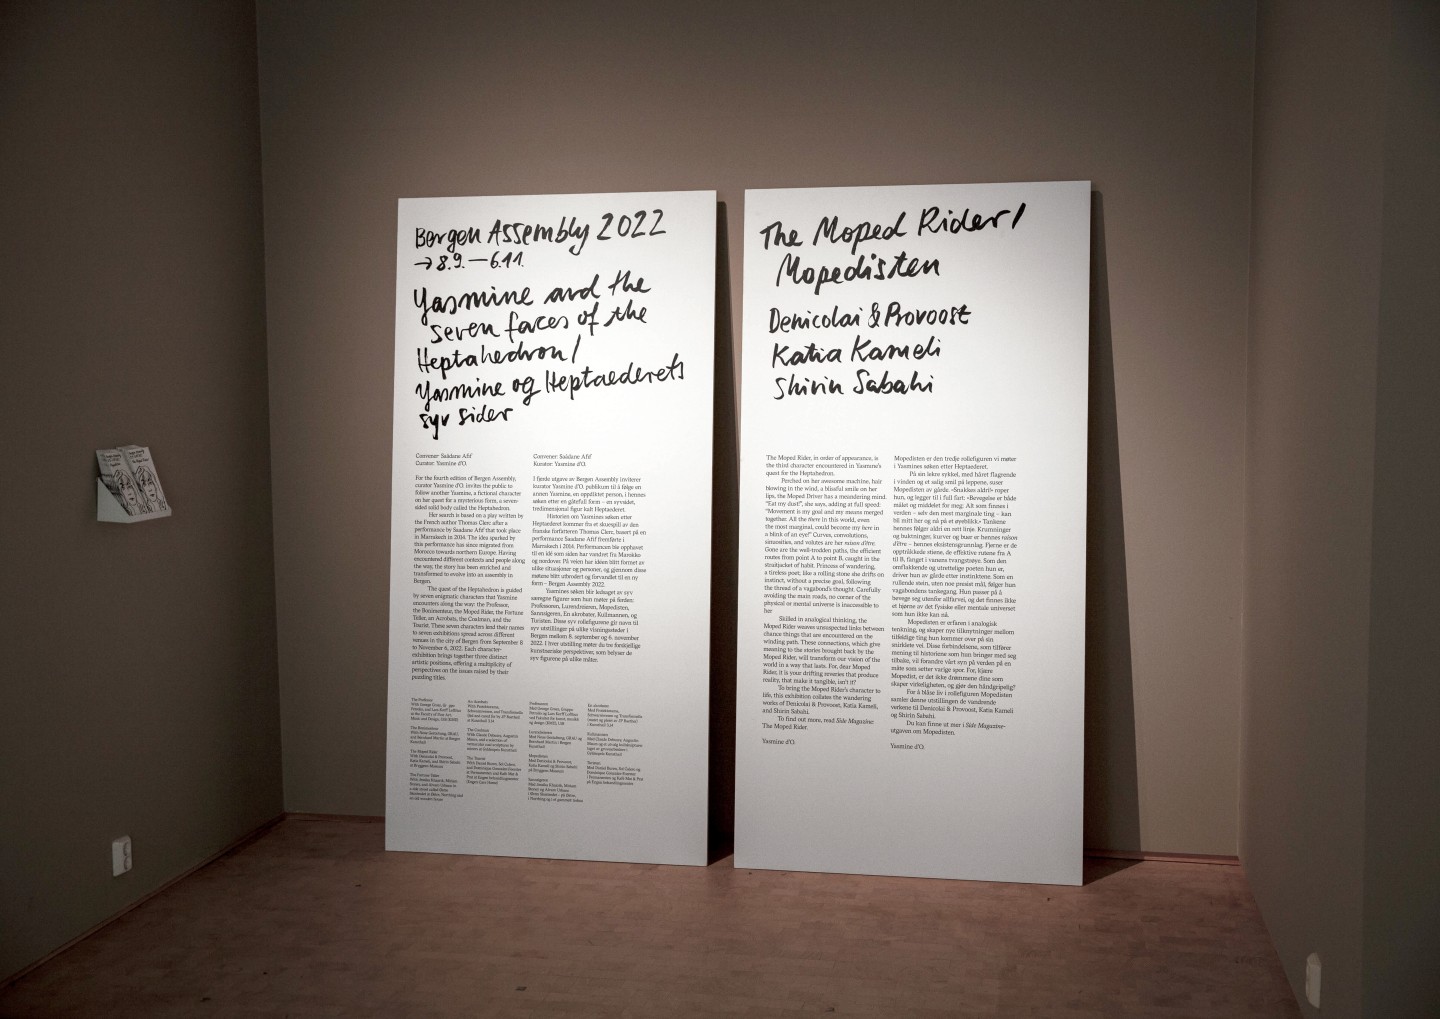 Bergen Assembly 2022
→ 8.9.—6.11.
Yasmine and the
seven faces of the
Heptahedron/
Yasmine og Heptaederets
syv sider
Convener: Saâdane Afif
Curator: Yasmine d'O.
For the fourth edition of Bergen Assembly,
curator Yasmine d'O. invites the public to
follow another Yasmine, a fictional character
on her quest for a mysterious form, a seven-
sided solid body called the Heptahedron.
Her search is based on a play written by
the French author Thomas Clerc after a
performance by Saâdane Afif that took place
in Marrakech in 2014. The idea sparked by
this performance has since migrated from
Morocco towards northern Europe. Having
encountered different contexts and people along
the way, the story has been enriched and
transformed to evolve into an assembly in
Bergen.
The quest of the Heptahedron is guided
by seven enigmatic characters that Yasmine
encounters along the way: the Professor,
the Bonimenteur, the Moped Rider, the Fortune
Teller, an Acrobats, the Coalman, and the
Tourist. These seven characters lend their names
to seven exhibitions spread across different
venues in the city of Bergen from September 8
to November 6, 2022. Each character-
exhibition brings together three distinct
artistic positions, offering a multiplicity of
perspectives on the issues raised by their
puzzling titles.
Convener: Saâdane Afif
Kurator: Yasmine d'O.
I fjerde utgave av Bergen Assembly inviterer
kurator Yasmine d'O. publikum til å følge en
annen Yasmine, en oppdiktet person, i hennes
søken etter en gåtefull form – en syvsidet,
tredimensjonal figur kalt Heptaederet.
Historien om Yasmines søken etter
Heptaederet kommer fra et skuespill av den
franske forfatteren Thomas Clerc, basert på en
performance Saâdane Afif fremførte i
Marrakech i 2014. Performancen ble opphavet
til en idé som siden har vandret fra Marokko
og nordover. På veien har idéen blitt formet av
ulike situasjoner og personer, og gjennom disse
møtene blitt utbrodert og forvandlet til en ny
form – Bergen Assembly 2022.
Yasmines søken blir ledsaget av syv
særegne figurer som hun møter på ferden:
Professoren, Lurendreieren, Mopedisten,
Sannsigeren, En akrobater, Kullmannen, og
Turisten. Disse syv rollefigurene gir navn til
syv utstillinger på ulike visningssteder i
Bergen mellom 8. september og 6. november
2022. I hver utstilling møter du tre forskjellige
kunstneriske perspektiver, som belyser de
syv figurene på ulike måter.
The Moped Rider/
Mopedisten
Denicolai & Provoost
Katia Kameli
Shirin Sabahi
The Moped Rider, in order of appearance, is
the third character encountered in Yasmine's
quest for the Heptahedron.
Perched on her awesome machine, hair
blowing in the wind, a blissful smile on her
lips, the Moped Driver has a meandering mind.
"Eat my dust!", she says, adding at full speed:
"Movement is my goal and my means merged
together. All the here in this world, even
the most marginal, could become my here in
a blink of an eye!" Curves, convolutions,
sinuosities, and volutes are her raison d'être.
Gone are the well-trodden paths, the efficient
routes from point A to point B, caught in the
straitjacket of habit. Princess of wandering,
a tireless poet, like a rolling stone she drifts on
instinct, without a precise goal, following
the thread of a vagabond's thought. Carefully
avoiding the main roads, no corner of the
physical or mental universe is inaccessible to
her
Skilled in analogical thinking, the
Moped Rider weaves unsuspected links between
chance things that are encountered on the
winding path. These connections, which give
meaning to the stories brought back by the
Moped Rider, will transform our vision of the
world in a way that lasts. For, dear Moped
Rider, it is your drifting reveries that produce
reality, that make it tangible, isn't it?
To bring the Moped Rider's character to
life, this exhibition collates the wandering
works of Denicolai & Provoost, Katia Kameli,
and Shirin Sabahi.
To find out more, read Side Magazine
The Moped Rider.
Yasmine d'O.
Mopedisten er den tredje rollefiguren vi møter
i Yasmines søken etter Heptaederet.
På sin lekre sykkel, med håret flagrende
i vinden og et salig smil på leppene, suser
Mopedisten av gårde. «Snakkes aldri!» roper
hun, og legger til i full fart: «Bevegelse er både
målet og middelet for meg: Alt som finnes i
verden – selv den mest marginale ting – kan
bli mitt her og nå på et øyeblikk.» Tankene
hennes følger aldri en rett linje. Krumninger
og buktninger, kurver og buer er hennes raison
d'être – hennes eksistensgrunnlag. Fjerne er de
opptråkkede stiene, de effektive rutene fra A
til B, fanget i vanens tvangstrøye. Som den
omflakkende og utrettelige poeten hun er,
driver hun av gårde etter instinktene. Som en
rullende stein, uten noe presist mål, følger hun
vagabondens tankegang. Hun passer på å
bevege seg utenfor allfarvei, og det finnes ikke
et hjørne av det fysiske eller mentale universet
som hun ikke kan nå.
Mopedisten er erfaren i analogisk
tenkning, og skaper nye tilknytninger mellom
tilfeldige ting hun kommer over på sin
snirklete vei. Disse forbindelsene, som tilfører
mening til historiene som hun bringer med seg
tilbake, vil forandre vårt syn på verden på en
måte som setter varige spor. For, kjære
Mopedist, er det ikke drømmene dine som
skaper virkeligheten, og gjør den håndgripelig?
For å blåse liv i rollefiguren Mopedisten
samler denne utstillingen de vandrende
verkene til Denicolai & Provoost, Katia Kameli
og Shirin Sabahi.
Du kan finne ut mer i Side Magazine-
utgaven om Mopedisten.
Yasmine d'O.